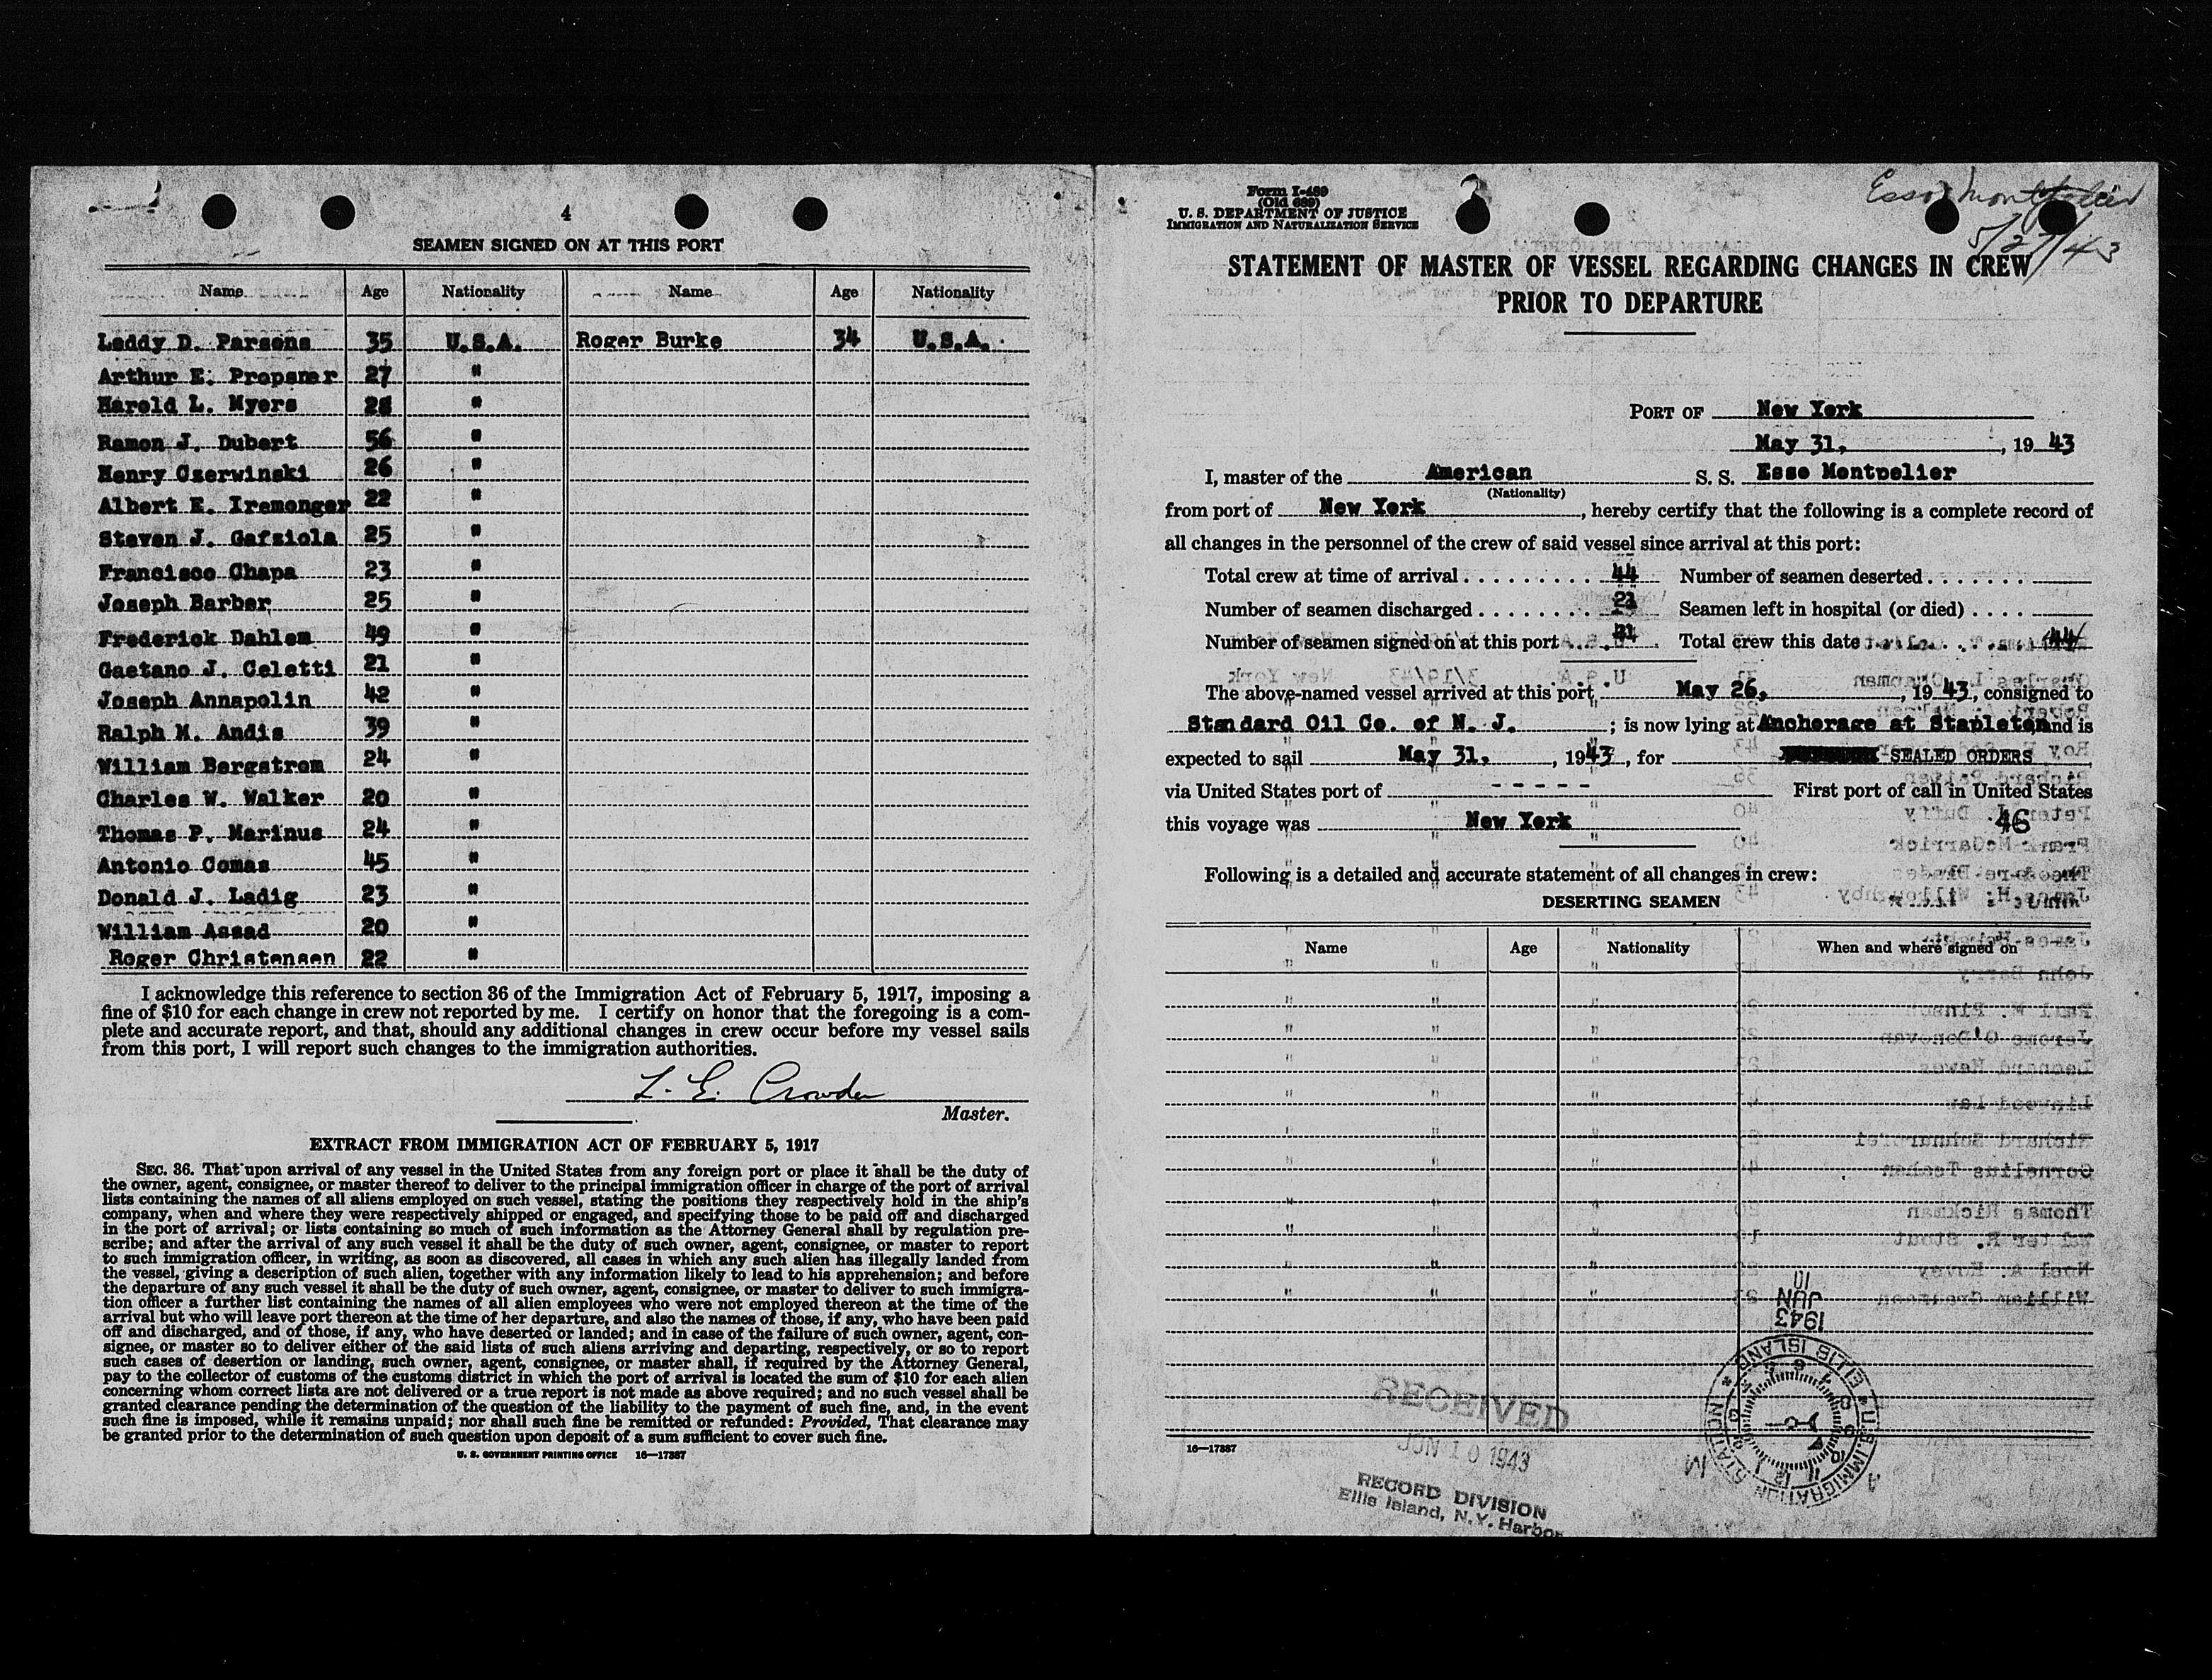 4
SEAMEN SIGNED ON AT THIS PORT
Name Age Nationality Name Age Nationality
Laddy D. Parsons 35 U.S.A. Roger Burke 34 U.S.A.
Arthur E. Propsner 27 "
Harold L. Myers 28 "
Ramon J. Dubert 56 "
Henry Czerwinski 26 "
Albert E. Iremonger 22 "
Steven J. Gafziola 25 "
Francisco Chapa 23 "
Joseph Barber 25 "
Frederick Dahlem 49 "
Gaetano J. Celetti 21 "
Joseph Annapolin 42 "
Ralph M. Andis 39 "
William Bergstrom 24 "
Charles W. Walker 20 "
Thomas P. Marinus 24 "
Antonio Comas 45 "
Donald J. Ladig 23 "
William Assad 20 "
Roger Christensen 22 "
I acknowledge this reference to section 36 of the Immigration Act of February 5, 1917, imposing a
fine of $10 for each change in crew not reported by me. I certify on honor that the foregoing is a com-
plete and accurate report, and that, should any additional changes in crew occur before my vessel sails
from this port, I will report such changes to the immigration authorities.
L. E. Crowder
Master.
EXTRACT FROM IMMIGRATION ACT OF FEBRUARY 5, 1917
SEC. 36. That upon arrival of any vessel in the United States from any foreign port or place it shall be the duty of
the owner, agent, consignee, or master thereof to deliver to the principal immigration officer in charge of the port of arrival
lists containing the names of all aliens employed on such vessel, stating the positions they respectively hold in the ship's
company, when and where they were respectively shipped or engaged, and specifying those to be paid off and discharged
in the port of arrival; or lists containing so much of such information as the Attorney General shall by regulation pre-
scribe; and after the arrival of any such vessel it shall be the duty of such owner, agent, consignee, or master to report
to such immigration officer, in writing, as soon as discovered, all cases in which any such alien has illegally landed from
the vessel, giving a description of such alien, together with any information likely to lead to his apprehension; and before
the departure of any such vessel it shall be the duty of such owner, agent, consignee, or master to deliver to such immigra-
tion officer a further list containing the names of all alien employees who were not employed thereon at the time of the
arrival but who will leave port thereon at the time of her departure, and also the names of those, if any, who have been paid
off and discharged, and of those, if any, who have deserted or landed; and in case of the failure of such owner, agent, con-
signee, or master so to deliver either of the said lists of such aliens arriving and departing, respectively, or so to report
such cases of desertion or landing, such owner, agent, consignee, or master shall, if required by the Attorney General,
pay to the collector of customs of the customs district in which the port of arrival is located the sum of $10 for each alien
concerning whom correct lists are not delivered or a true report is not made as above required; and no such vessel shall be
granted clearance pending the determination of the question of the liability to the payment of such fine, and, in the event
such fine is imposed, while it remains unpaid; nor shall such fine be remitted or refunded: Provided, That clearance may
be granted prior to the determination of such question upon deposit of a sum sufficient to cover such fine.
U. S. GOVERNMENT PRINTING OFFICE 16—17387
Form I-489
(Old 689)
U. S. DEPARTMENT OF JUSTICE
IMMIGRATION AND NATURALIZATION SERVICE
Esso Montpelier
5/27/43
STATEMENT OF MASTER OF VESSEL REGARDING CHANGES IN CREW
PRIOR TO DEPARTURE
PORT OF New York
May 31, 1943
I, master of the American S. S. Esso Montpelier
(Nationality)
from port of New York, hereby certify that the following is a complete record of
all changes in the personnel of the crew of said vessel since arrival at this port:
Total crew at time of arrival 44 Number of seamen deserted
Number of seamen discharged 21 Seamen left in hospital (or died)
Number of seamen signed on at this port 21 Total crew this date 44
The above-named vessel arrived at this port May 26, 1943, consigned to
Standard Oil Co. of N. J.; is now lying at Anchorage at Stapleton and is
expected to sail May 31, 1943, for SEALED ORDERS
via United States port of - - - - - First port of call in United States
this voyage was New York
46
Following is a detailed and accurate statement of all changes in crew:
DESERTING SEAMEN
Name Age Nationality When and where signed on
1943
JUN
10
U.S. IMMIGRATION STATION ELLIS ISLAND
A M
16—17387
RECEIVED
JUN 10 1943
RECORD DIVISION
Ellis Island, N.Y. Harbor